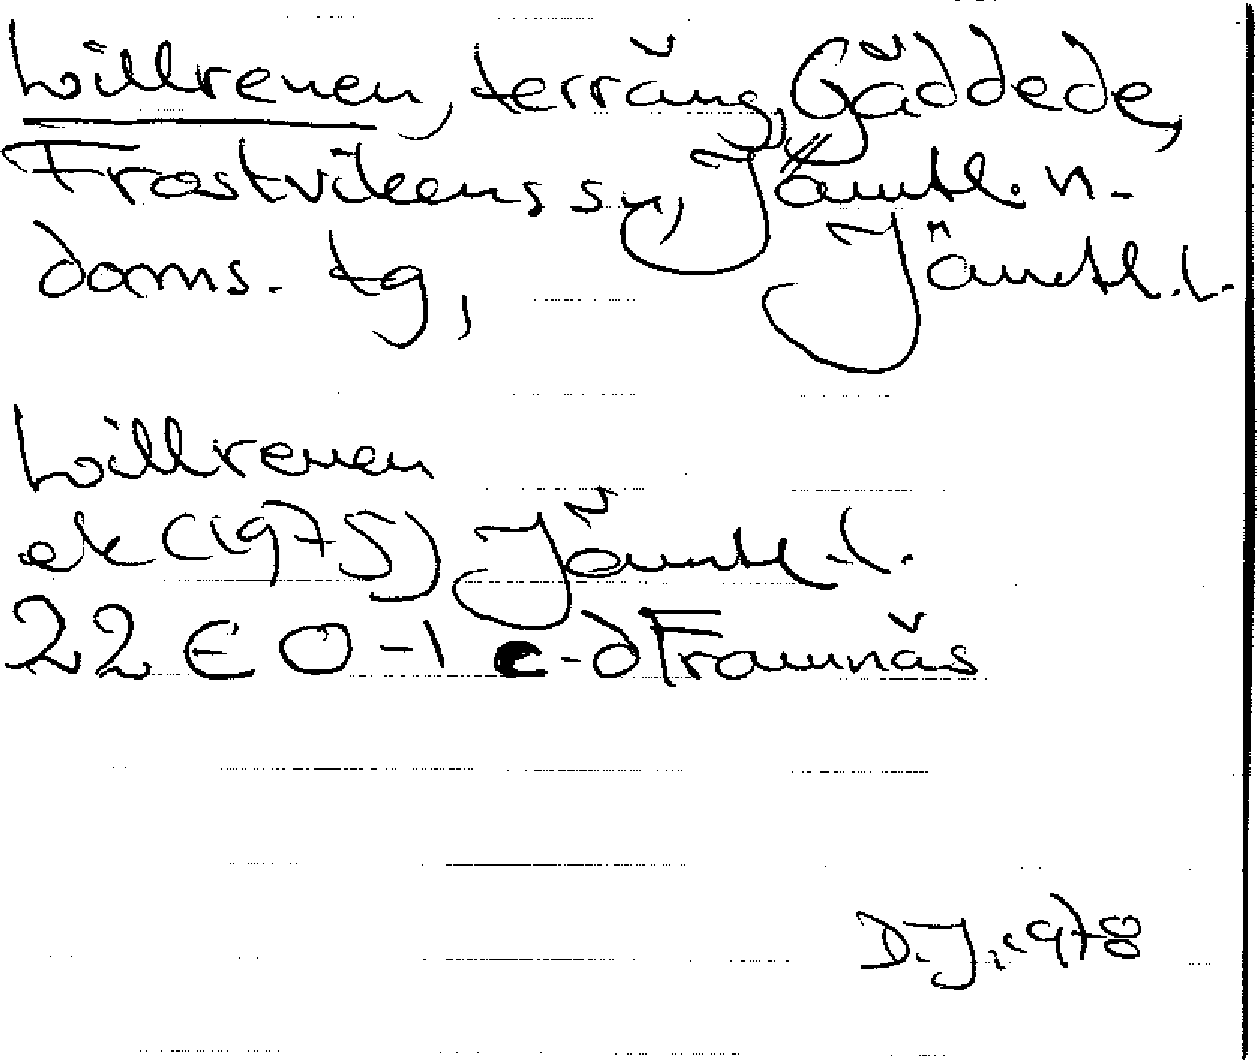 Lillrenen, terräng, Gäddede,
Frostvikens sn, Jämtl. n.
doms. tg,
Jämtl. l.
Lillrenen
ek (1975) Jämtl. l.
22 E 0-1 c-d Framnäs
D.J. 1978